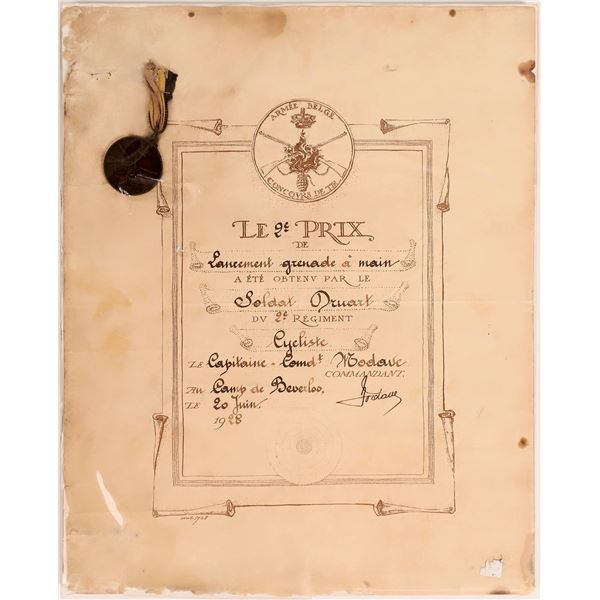 ARMÉE BELGE
CONCOURS DE TIR
LE 2e PRIX
DE
Lancement grenade à main
A ÉTÉ OBTENU PAR LE
Soldat Druart
DU 2e RÉGIMENT
Cycliste
LE Capitaine - Comdt Modave
COMMANDANT,
AU Camp de Beverloo,
LE 20 Juin.
1928
Modave